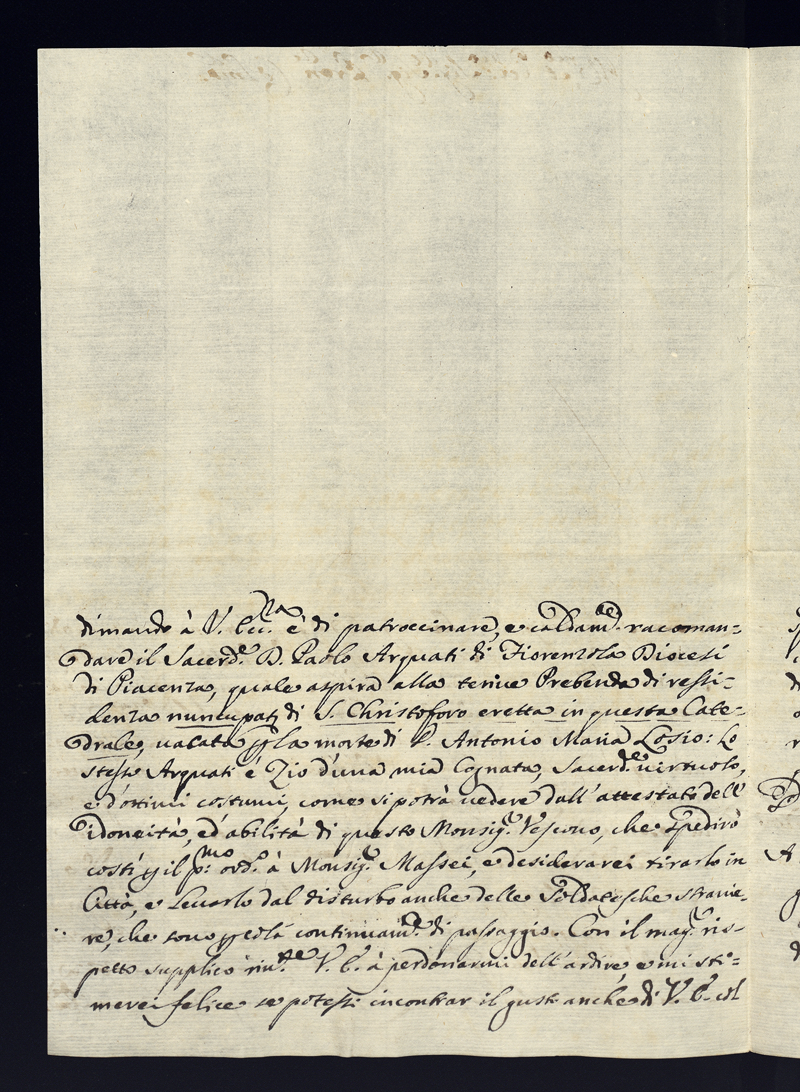 dimando à V. Ecc.za è di patroccinare, e caldam.te racoman=
dare il Sacerd.e D. Paolo Arquati di Fiorenzola Diocesi
di Piacenza, quale aspira alla tenue Prebenda di ressi=
denza nuncupati di S. Christoforo eretta in questa Cate=
drale, vacata p la morte di D. Antonio Maria Losio: Lo
stesso Arquati è Zio d'una mia Cognata, Sacerd.e virtuoso,
e d'ottimi costumi, come si potrà vedere dall'attestato dell'
idoneità, ed'abilità di questo Monsig.r Vescovo, che spedirò
costì p il p.mo ord.o à Monsig.r Massei, e desiderarei tirarlo in
Città, e levarlo dal disturbo anche delle Soldatesche stranie=
re, che sono p colà continuam.te di passaggio. Con il mag.r ris=
petto supplico riv.te V. E. à perdonarmi dell'ardire e mi sti=
merei felice se potessi incontrar il gusto anche di V. E. col